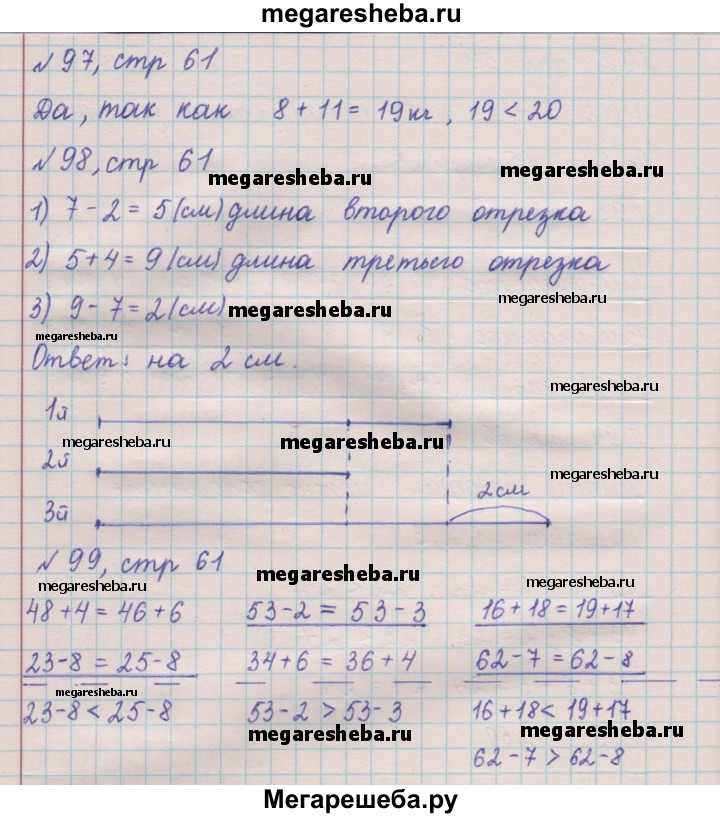 megaresheba.ru
№97, стр 61
Да, так как 8 + 11 = 19 кг, 19 < 20
№98, стр 61
megaresheba.ru megaresheba.ru
1) 7 - 2 = 5 (см) длина второго отрезка
2) 5 + 4 = 9 (см) длина третьего отрезка
megaresheba.ru
3) 9 - 7 = 2 (см) megaresheba.ru
megaresheba.ru
Ответ: на 2 см.
megaresheba.ru
1й
megaresheba.ru megaresheba.ru
2й
megaresheba.ru
2 см
3й
№99, стр 61
megaresheba.ru megaresheba.ru megaresheba.ru
48 + 4 = 46 + 6 53 - 2 = 53 - 3 16 + 18 = 19 + 17
23 - 8 = 25 - 8 34 + 6 = 36 + 4 62 - 7 = 62 - 8
megaresheba.ru
23 - 8 < 25 - 8 53 - 2 > 53 - 3 16 + 18 < 19 + 17
megaresheba.ru megaresheba.ru
62 - 7 > 62 - 8
Мегарешеба.ру